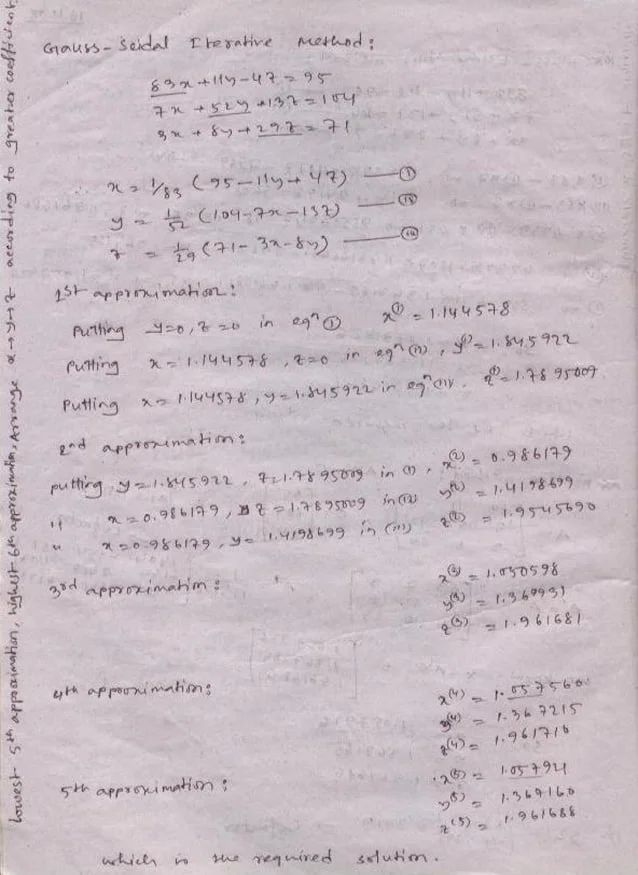 Gauss-Seidal Iterative Method:
83x + 11y - 4z = 95
7x + 52y + 13z = 104
3x + 8y + 29z = 71
∴ x = 1/83 (95 - 11y + 4z) — (i)
y = 1/52 (104 - 7x - 13z) — (ii)
z = 1/29 (71 - 3x - 8y) — (iii)
1st approximation:
Putting y=0, z=0 in eqn (i) x(1) = 1.144578
Putting x = 1.144578, z=0 in eqn (ii), y(1) = 1.845922
Putting x = 1.144578, y = 1.845922 in eqn (iii). z(1) = 1.7895009
2nd approximation:
putting y = 1.845922, z = 1.7895009 in (i), x(2) = 0.986179
" x = 0.986179, z = 1.7895009 in (ii) y(2) = 1.4198699
" x = 0.986179, y = 1.4198699 in (iii) z(2) = 1.9545690
3rd approximation:
x(3) = 1.050598
y(3) = 1.3689931
z(3) = 1.961681
4th approximation:
x(4) = 1.0575660
y(4) = 1.367215
z(4) = 1.961716
5th approximation:
x(5) = 1.05794
y(5) = 1.367160
z(5) = 1.961688
which is the required solution.
Lowest 5th approximation, highest 6th approximation, Arrange x→y→z according to greater coefficient.